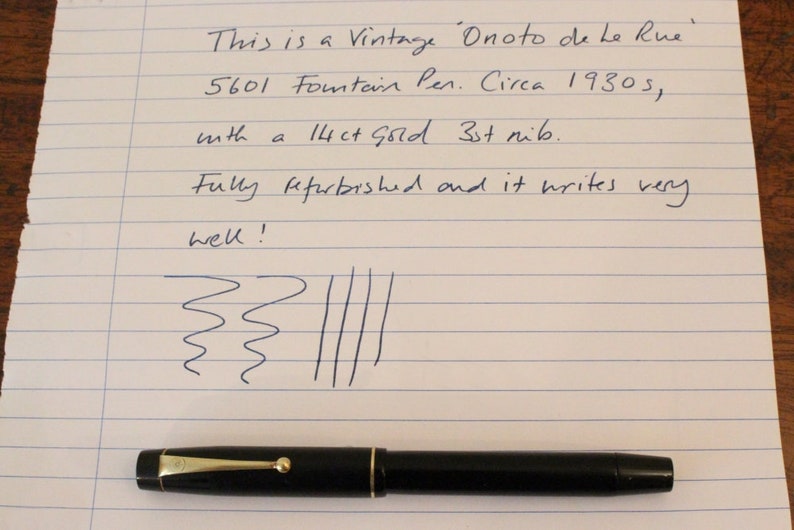 This is a Vintage 'Onoto de La Rue'
5601 Fountain Pen. Circa 1930s,
with a 14ct Gold 3st nib.
Fully refurbished and it writes very
well!